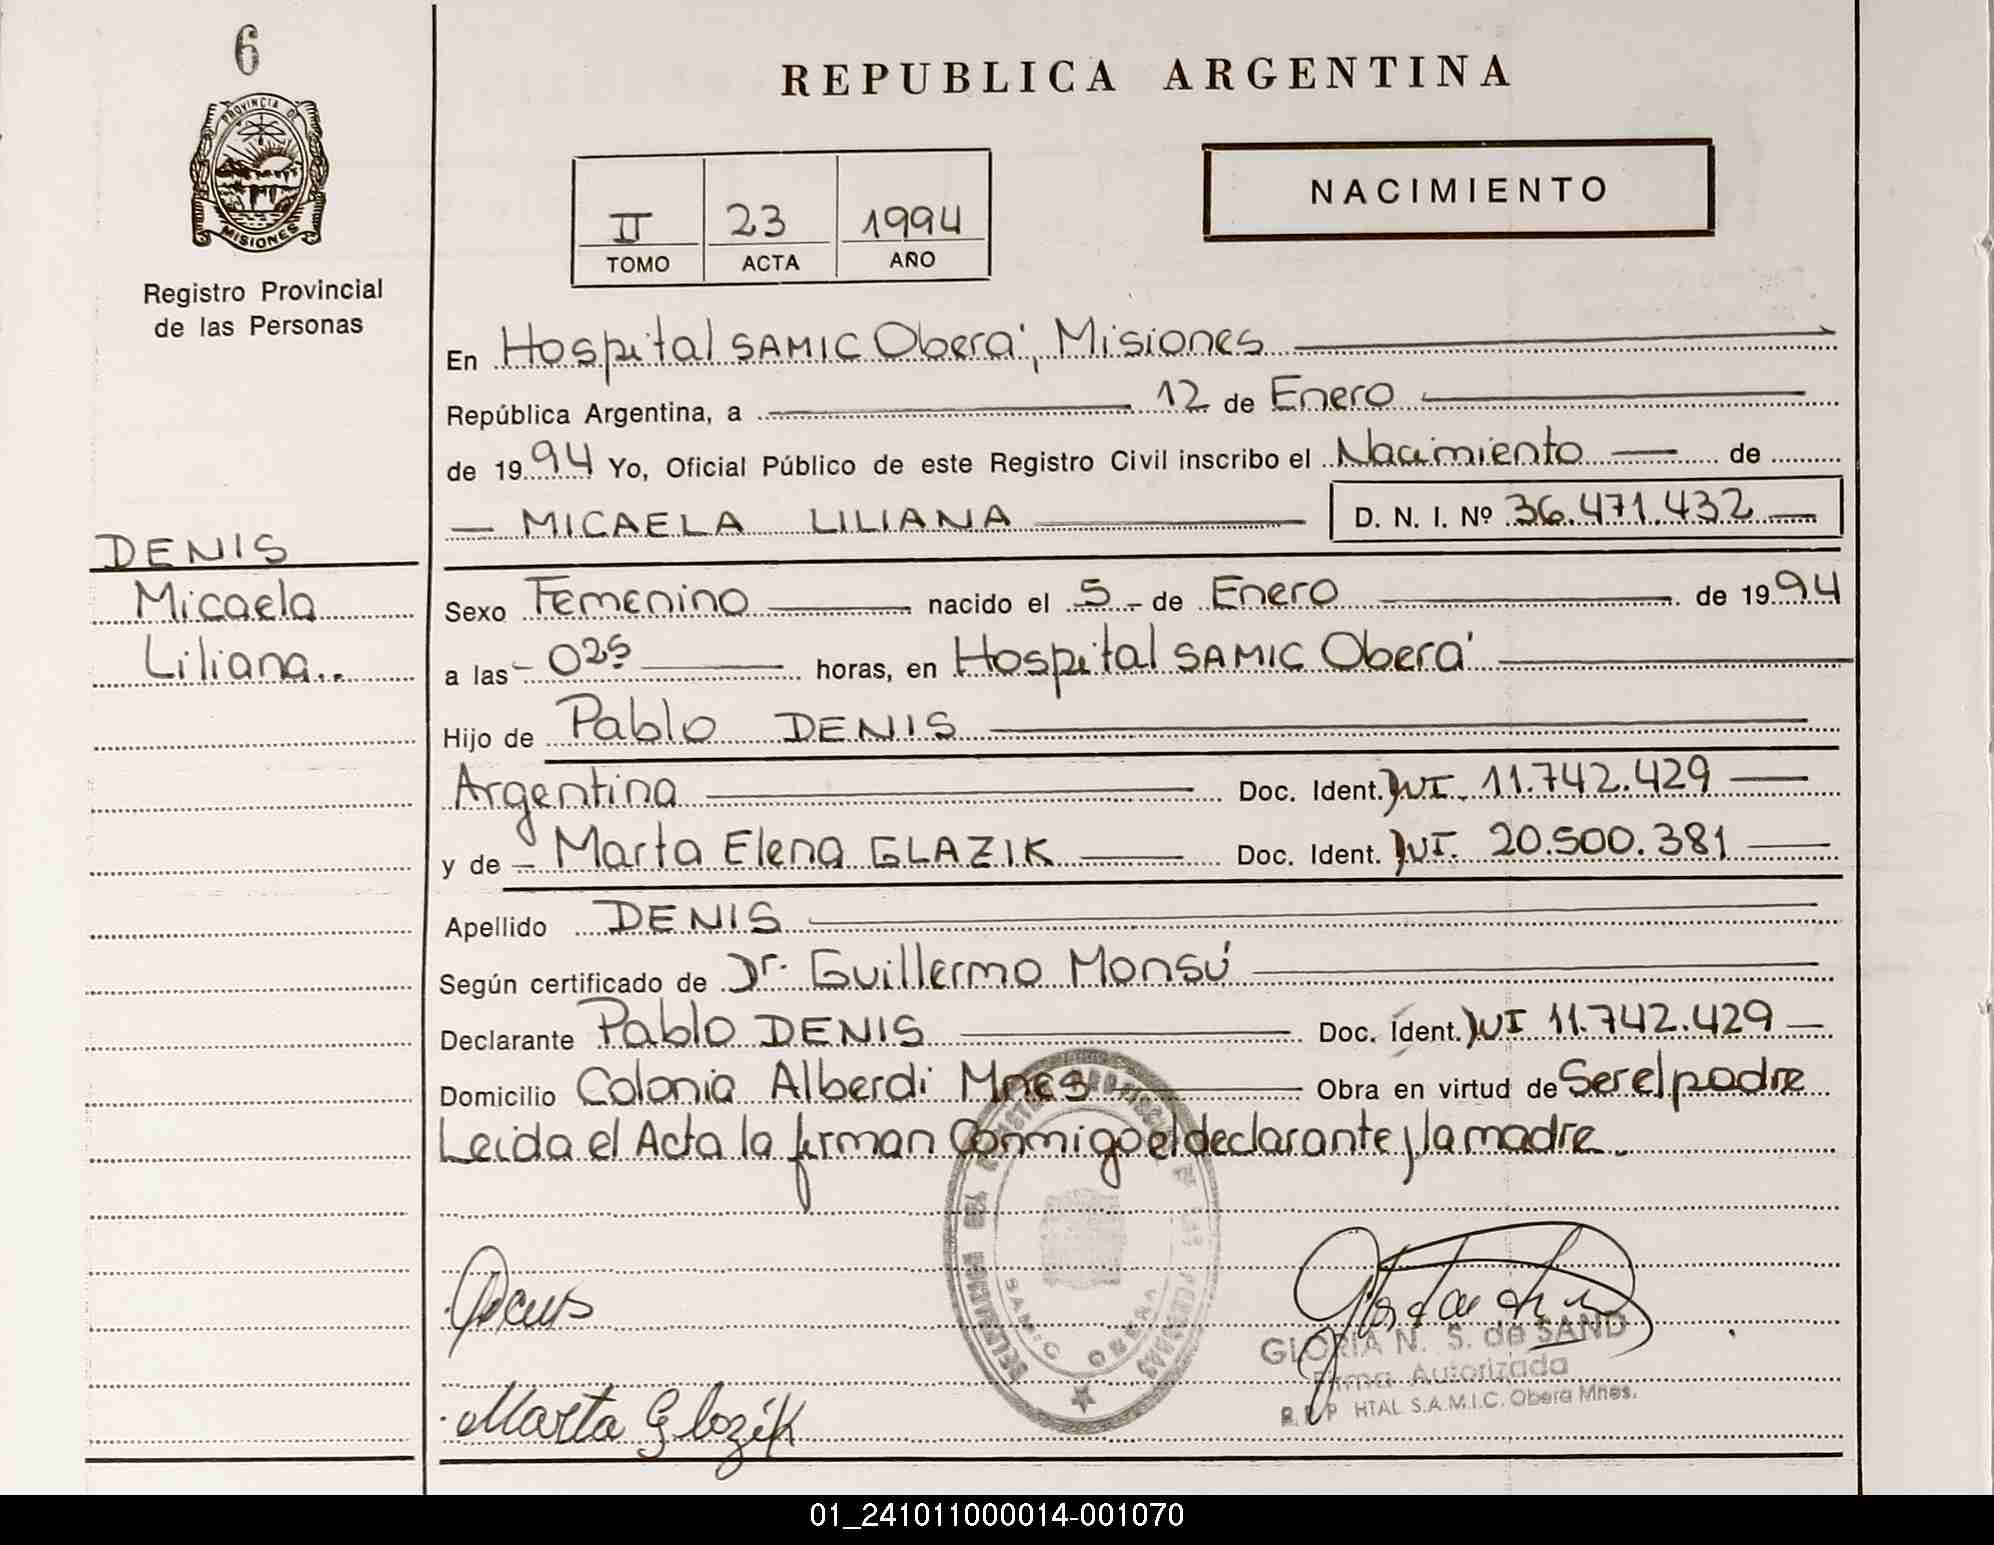 6
PROVINCIA DE
MISIONES
Registro Provincial
de las Personas
DENIS
Micaela
Liliana..
REPUBLICA ARGENTINA
II 23 1994
TOMO ACTA AÑO
NACIMIENTO
En Hospital SAMIC Oberá, Misiones
República Argentina, a 12 de Enero
de 1994 Yo, Oficial Público de este Registro Civil inscribo el Nacimiento de
MICAELA LILIANA D. N. I. Nº 36.471.432
Sexo Femenino nacido el 5 de Enero de 1994
a las 025 horas, en Hospital SAMIC Oberá
Hijo de Pablo DENIS
Argentina Doc. Ident. DNI. 11.742.429
y de Marta Elena GLAZIK Doc. Ident. DNI. 20.500.381
Apellido DENIS
Según certificado de Dr. Guillermo Monsú
Declarante Pablo DENIS Doc. Ident. DNI 11.742.429
Domicilio Colonia Alberdi Mnes Obra en virtud de Ser el padre
Leida el Acta la firman Conmigo el declarante y la madre.
SAMIC OBERA
Marta Glozik
GLORIA N. S. de SAND
Firma Autorizada
R.P.P HTAL S.A.M.I.C. Obera Mnes.
01_241011000014-001070